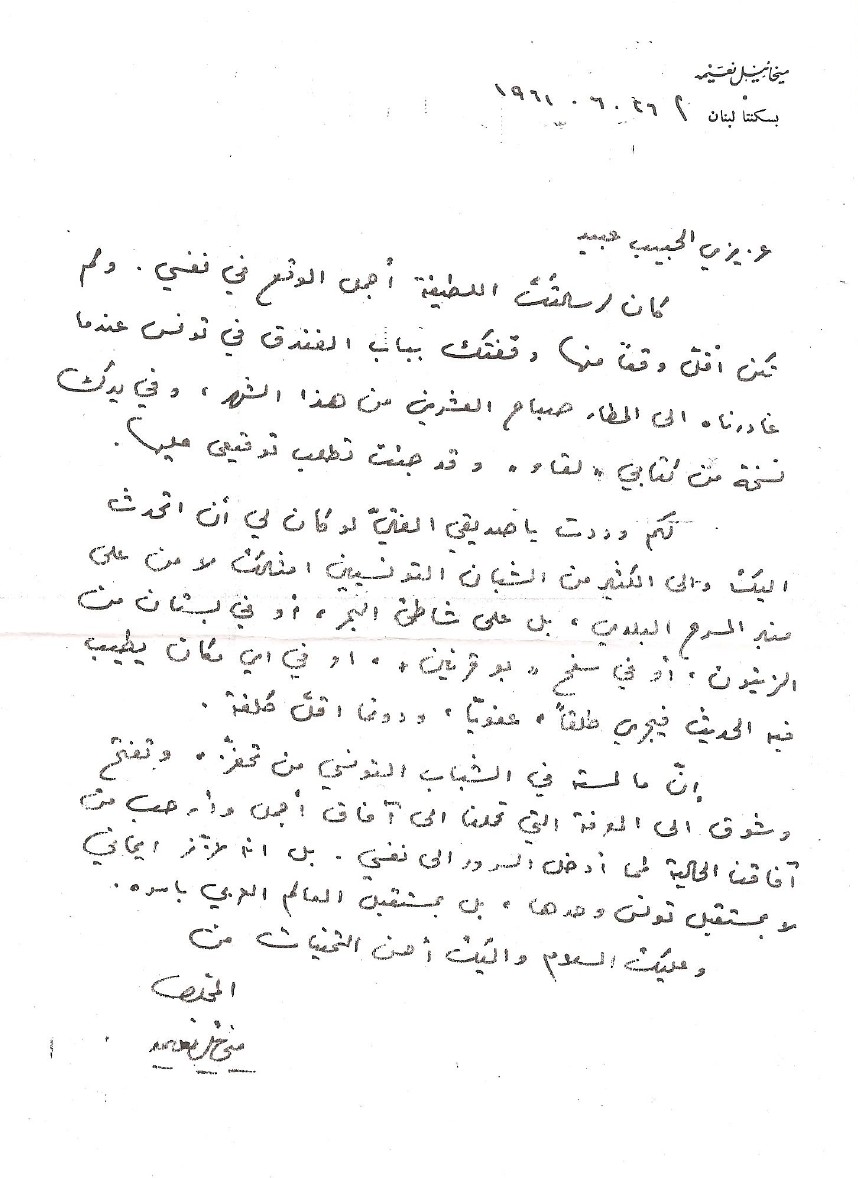 ميخائيل نعيمه
بسكنتا لبنان ٢٦ . ٦ . ١٩٦١
عزيزي الحبيب عبيد
كان لرسالتك اللطيفة أجمل الوقع في نفسي . ولم
تكن أقلّ وقعاً منها وقفتك بباب الفندق في تونس عندما
غادرناه الى المطار صباح العشرين من هذا الشهر ، وفي يدك
نسخة من كتابي « لقاء » وقد جئت تطلب توقيعي عليها .
لكم وددت يا صديقي الفتيّ لو كان لي أن اتحدث
اليك والى الكثير من الشبان التونسيين امثالك لا من على
منبر المسرح البلدي ، بل على شاطئ البحر ، أو في بستان من
الزيتون ، أو في سفح « بو قرنين » ، او في اي مكان يطيب
فيه الحديث فيجري طلقاً ، عفويّاً ، ودونما اقلّ كلفة .
إنّ ما لمسته في الشباب التونسي من تحفّز ، وتفتح
وشوق الى المعرفة التي تحملنا الى آفاق أجمل وأرحب من
آفاقنا الحالية لمما أدخل السرور الى نفسي . بل انه عزّز ايماني
لا بمستقبل تونس وحدها ، بل بمستقبل العالم العربي باسره .
وعليك السلام واليك أحسن التمنيات من
المخلص
ميخائيل نعيمه